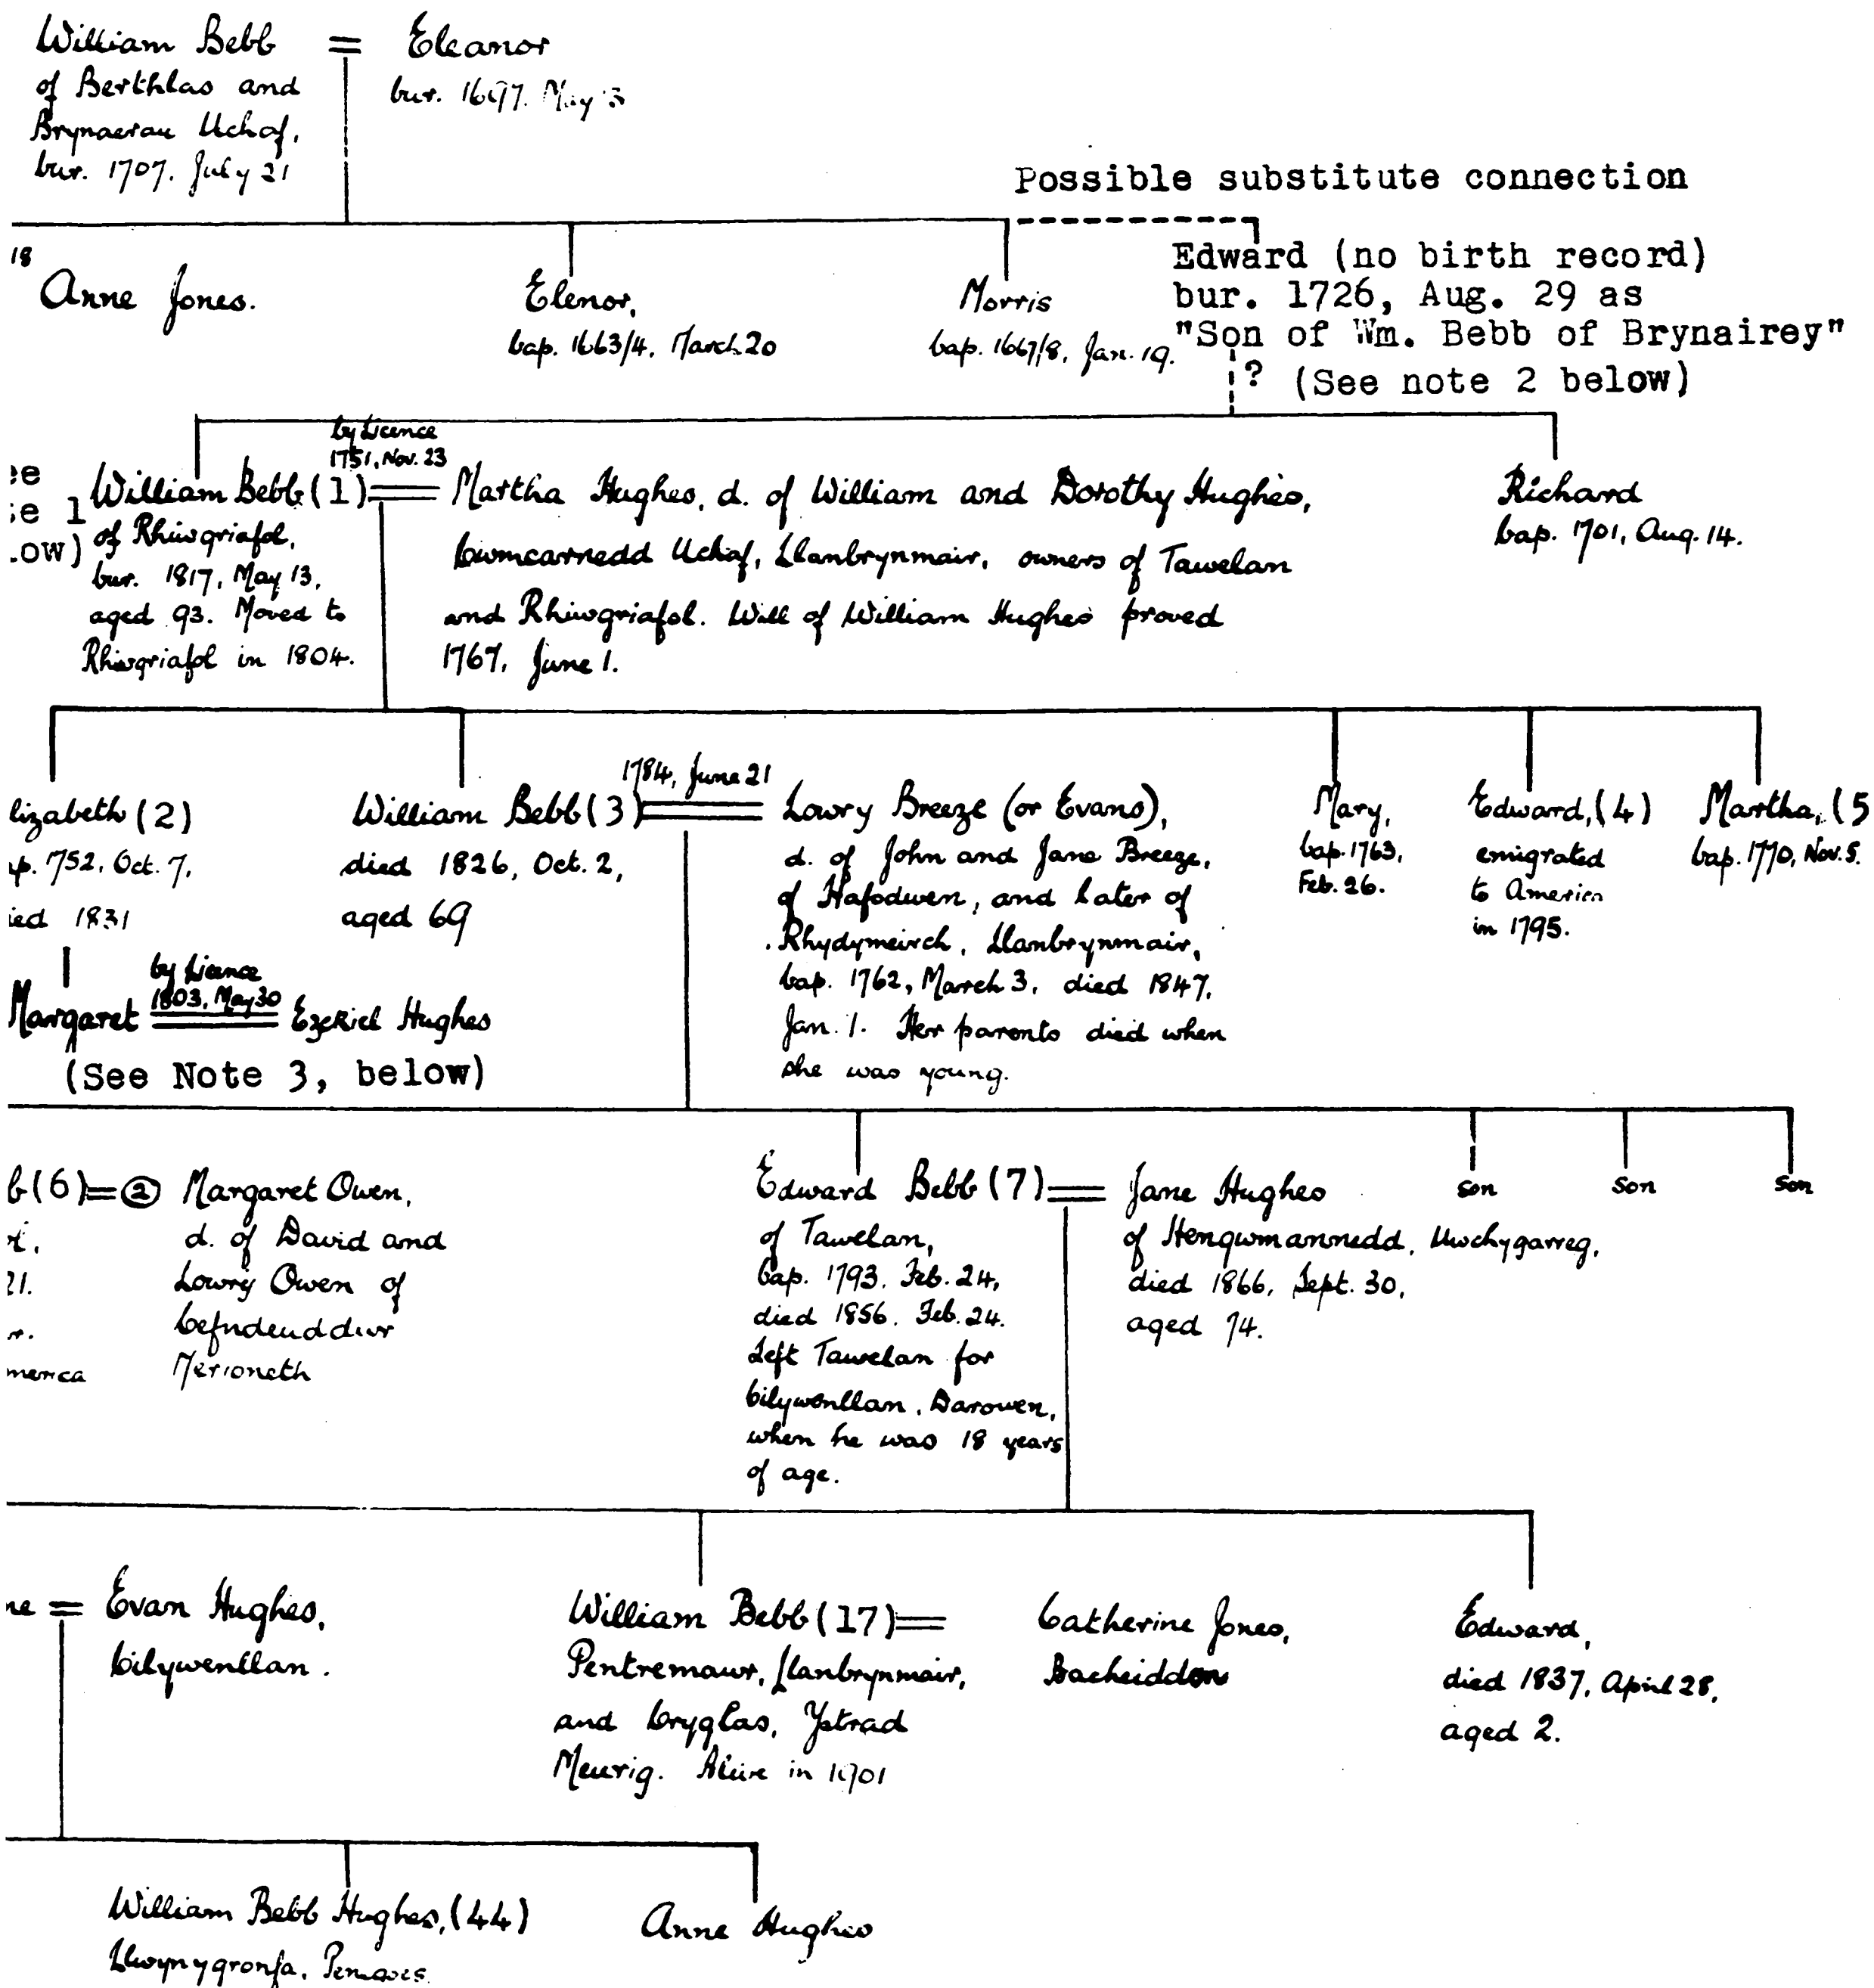 William Bebb = Eleanor
of Berthlas and
Brynaerau Uchaf,
bur. 1707. July 21
bur. 1697. May 3
Possible substitute connection
18
Anne Jones.
Elenor,
bap. 1663/4, March 20
Morris
bap. 1667/8, Jan. 19.
Edward (no birth record)
bur. 1726, Aug. 29 as
"Son of Wm. Bebb of Brynairey"
? (See note 2 below)
ee
se 1
low)
by Licence
1751, Nov. 23
William Bebb (1) =
of Rhiwgriafol,
bur. 1817, May 13,
aged 93. Moved to
Rhiwgriafol in 1804.
Martha Hughes, d. of William and Dorothy Hughes,
Cwmcarnedd Uchaf, Llanbrynmair, owners of Tawelan
and Rhiwgriafol. Will of William Hughes proved
1767, June 1.
Richard
bap. 1701, Aug. 14.
lizabeth (2)
ap. 1752, Oct. 7,
ied 1831
William Bebb (3) =
died 1826, Oct. 2,
aged 69
1784, June 21
Lowry Breeze (or Evans),
d. of John and Jane Breeze,
of Hafodwen, and later of
Rhydymeirch, Llanbrynmair,
bap. 1762, March 3, died 1847,
Jan. 1. Her parents died when
she was young.
Mary,
bap. 1763,
Feb. 26.
Edward, (4)
emigrated
to America
in 1795.
Martha, (5
bap. 1770, Nov. 5.
by Licence
1803, May 30
Margaret = Ezekiel Hughes
(See Note 3, below)
b (6) = ②
21.
merica
Margaret Owen,
d. of David and
Lowry Owen of
Cefndeuddwr
Merioneth
Edward Bebb (7) =
of Tawelan,
bap. 1793. Feb. 24,
died 1856. Feb. 24.
Left Tawelan for
Cilywenllan, Darowen,
when he was 18 years
of age.
Jane Hughes
of Hengwmannedd, Uwchygarreg,
died 1866, Sept. 30,
aged 74.
son
son
son
ne = Evan Hughes,
Cilywenllan.
William Bebb (17) =
Pentremawr, Llanbrynmair,
and Cryglas, Ystrad
Meurig. Alive in 1901
Catherine Jones,
Bacheiddon
Edward,
died 1837, April 28,
aged 2.
William Bebb Hughes, (44)
Llwynygronfa, Penegoes
Anne Hughes